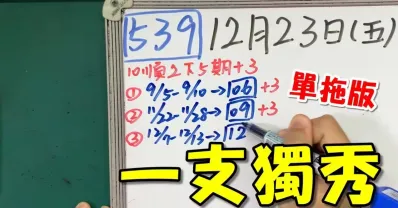 539 12月23日(五)
10順2下5期+3
① 9/5-9/10→106+3
② 11/22-11/28→109+3
③ 12/7-12/13→112
單拖版
一支獨秀